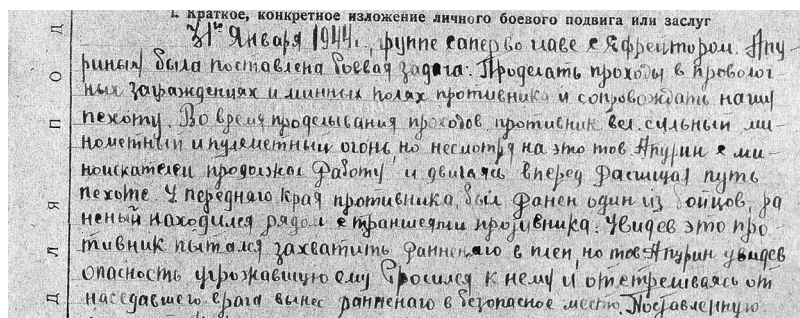 I. Краткое, конкретное изложение личного боевого подвига или заслуг
31го Января 1944г., группе сапер во главе с Ефрейтором. Апу-
риным была поставлена боевая задача: Проделать проходы в проволоч-
ных заграждениях и минных полях противника и сопровождать нашу
пехоту. Во время проделывания проходов противник вел сульный ми-
нометный и пулеметный огонь, но несмотря на это тов Апурин с ми-
ноискателем продолжал работу и двигаясь вперед расчищал путь
пехоте. У переднего края противника, был ранен один из бойцов, ра
неный находился рядом с траншеями противника. Увидев это про-
тивник пытался захватить ранненаго в плен, но тов Апурин увидев
опасность угрожавшую ему бросился к нему и отстреливаясь от
наседавшего врага вынес ранненаго в безопасное место. Поставленную
Д Л Я П О Д